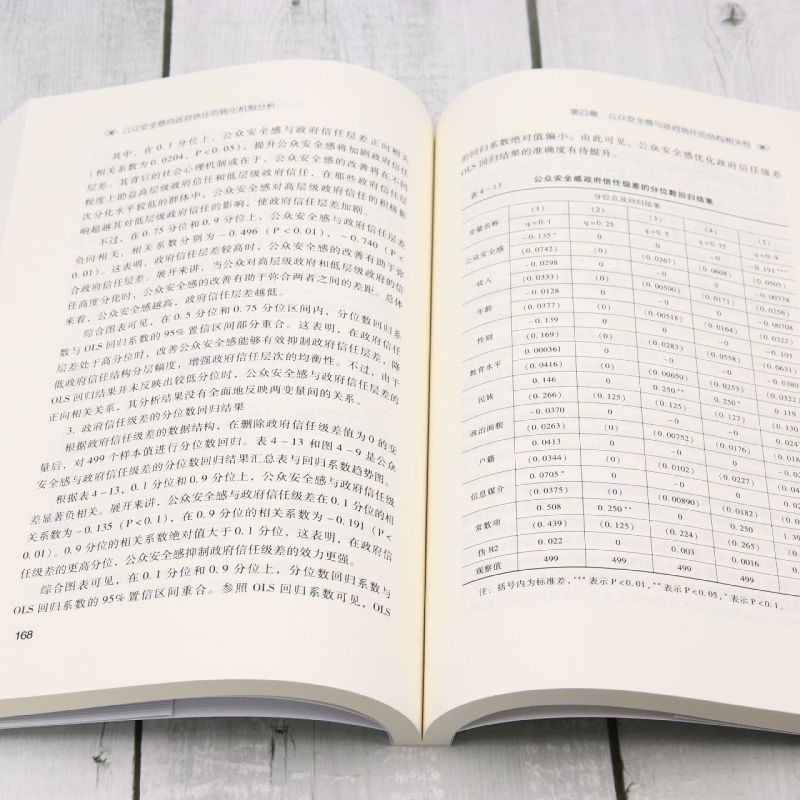 公众安全感向政府信任的转化机制分析
其中，在 0.1 分位上，公众安全感与政府信任层差正向相关
（相关系数为 0.0204，P＜0.05），提升公众安全感将加剧政府信任
层差。其背后的社会心理机制或在于，公众安全感的改善将在不同
程度上助益高层级政府信任和低层级政府信任，在那些政府信任层
次分化水平较低的群体中，公众安全感对高层级政府信任的积极影
响超越其对低层级政府信任的影响，使政府信任层差加剧。
不过，在 0.75 分位和 0.9 分位上，公众安全感与政府信任层差
负向相关，相关系数分别为 -0.496（P＜0.01），-0.740（P＜
0.01）。这表明，政府信任层差较高时，公众安全感的改善有助于弥
合政府信任层差。展开来讲，当公众对高层级政府和低层级政府的信
任高度分化时，公众安全感的改善有助于弥合两者之间的差距。总体
来看，公众安全感越高，政府信任层差越低。
综合图表可见，在 0.5 分位和 0.75 分位区间内，分位数回归系
数与 OLS 回归系数的 95% 置信区间部分重合。这表明，在政府信任
层差处于高分位时，改善公众安全感能够有效抑制政府信任层差，降
低政府信任结构分层幅度，增强政府信任层次的均衡性。不过，由于
OLS 回归结果并未反映出较低分位时，公众安全感与政府信任层差的
正向相关关系，其分析结果没有全面地反映两变量间的关系。
3. 政府信任级差的分位数回归结果
根据政府信任级差的数据结构，在删除政府信任级差值为 0 的变
量后，对 499 个样本值进行分位数回归。表 4-13 和图 4-9 是公众
安全感与政府信任级差的分位数回归结果汇总表与回归系数趋势图。
根据表 4-13，0.1 分位和 0.9 分位上，公众安全感与政府信任级
差显著负相关。展开来讲，公众安全感与政府信任级差在 0.1 分位的相
关系数为 -0.135（P＜0.1），在 0.9 分位的相关系数为 -0.191（P＜
0.01）。0.9 分位的相关系数绝对值大于 0.1 分位，这表明，在政府信
任级差的更高分位，公众安全感抑制政府信任级差的效力更强。
综合图表可见，在 0.1 分位和 0.9 分位上，分位数回归系数与
OLS 回归系数的 95% 置信区间重合。参照 OLS 回归系数可见，OLS
168
第四章 公众安全感与政府信任的结构相关性
的回归系数绝对值偏小。由此可见，公众安全感优化政府信任级差
OLS 回归结果的准确度有待提升。
表 4-13 公众安全感政府信任级差的分位数回归结果
分位点及回归结果
变量名称 (1) (2) (3) (4) (5)
q=0.1 q=0.25 q=0.5 q=0.75 q=0.9
公众安全感 -0.135* 0 -0 -0 -0.191***
(0.0742) (0) (0.0367) (0.0608) (0.0505)
收入 -0.0298 0 0 0 -0.00374
(0.0333) (0) (0.00500) (0.0171) (0.0256)
年龄 -0.0128 0 0 0 -0.00708
(0.0377) (0) (0.00518) (0.0164) (0.0322)
性别 -0.139 0 -0 -0 -0.103
(0.169) (0) (0.0283) (0.0558) (0.0631)
教育水平 0.000361 0 -0 -0 -0.0380
(0.0416) (0) (0.00650) (0.0253) (0.0322)
民族 0.146 0 0.250** 0.250*
(0.266) (0.125) (0.125) (0.127)
政治面貌 -0.0370 0 0 -0
(0.0263) (0) (0.00752) (0.0176)
户籍 0.0413 0 0 0
(0.0344) (0) (0.0102) (0.0227)
信息媒介 0.0705* 0 -0 -0
(0.0375) (0) (0.00890) (0.0182)
常数项 0.508 0.250** 0 0.250
(0.439) (0.125) (0.224) (0.265)
伪 R2 0.022 0 0.003 0.0016
观察值 499 499 499 499
注：括号内为标准差，*** 表示 P＜0.01，** 表示 P＜0.05，* 表示 P＜0.1。